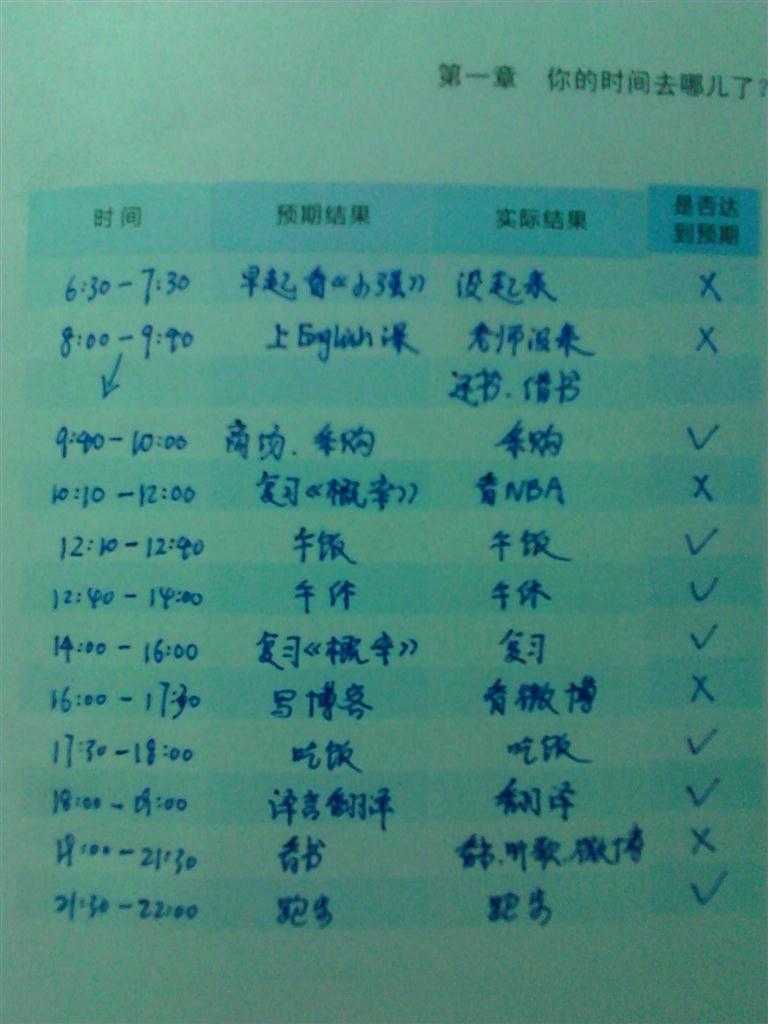 第一章 你的时间去哪儿了?
时间 预期结果 实际结果 是否达到预期
6:30-7:30 早起看《小强》 没起来 X
8:00-9:40 上English课 老师没来 X
↙ 还书、借书
9:40-10:00 商场、采购 采购 ✓
10:10-12:00 复习《概率》 看NBA X
12:10-12:40 午饭 午饭 ✓
12:40-14:00 午休 午休 ✓
14:00-16:00 复习《概率》 复习 ✓
16:00-17:30 写博客 看微博 X
17:30-18:00 吃饭 吃饭 ✓
18:00-19:00 译言翻译 翻译 ✓
19:00-21:30 看书 看书、听歌、微博 X
21:30-22:00 跑步 跑步 ✓